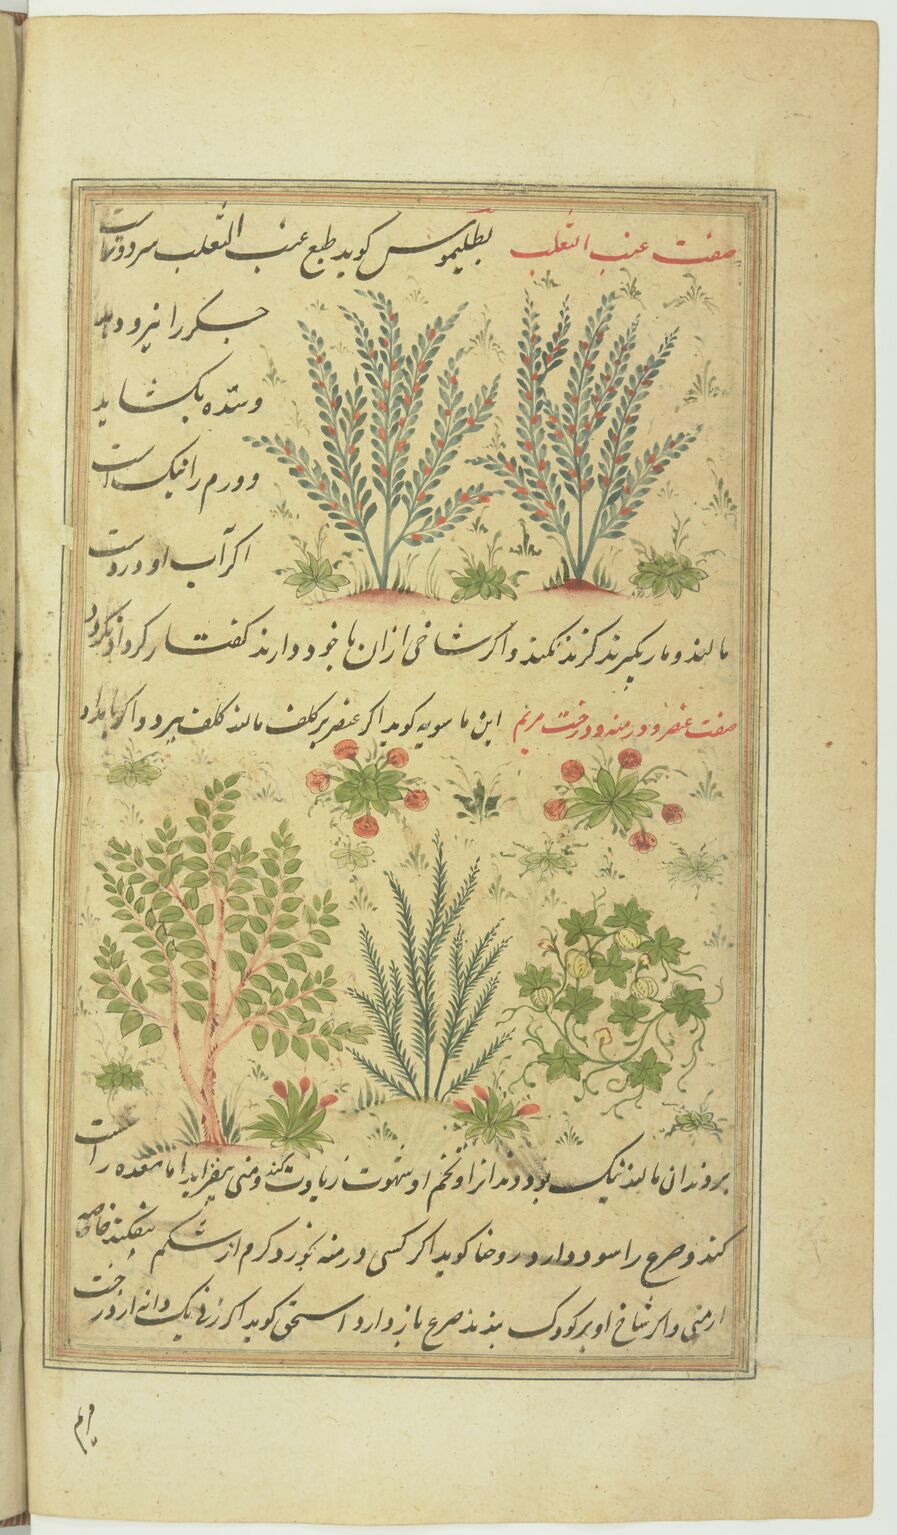 صفت عنب الثعلب بطلیموس کوید طبع عنب الثعلب سرد و تر است
جکر را نیرو دهد
و سدّه بکشاید
و ورم را نیک است
اکر آب او در دست
مالند و مار بکیرند کزند نکند و اکر شاخی از آن با خود دارند کفتار کرد او نکردد
صفت عنصر و درمنه و درخت مریم ابن ماسویه کوید اکر عنصر بر کلف مالند کلف ببرد و اکر بامداد
بر دندان مالند نیک بود دندانرا و تخم او شهوت زیادت کند و منی بیفزاید اما معده را سست
کند و صرع را سود دارد روخنا کوید اکر کسی درمنه بخورد کرم از شکم بیفکند خاصه
ارمنی و اکر شاخ او بر کودک بندند صرع باز دارد اسحق کوید اکر زنی یک دانه از درخت
مریم